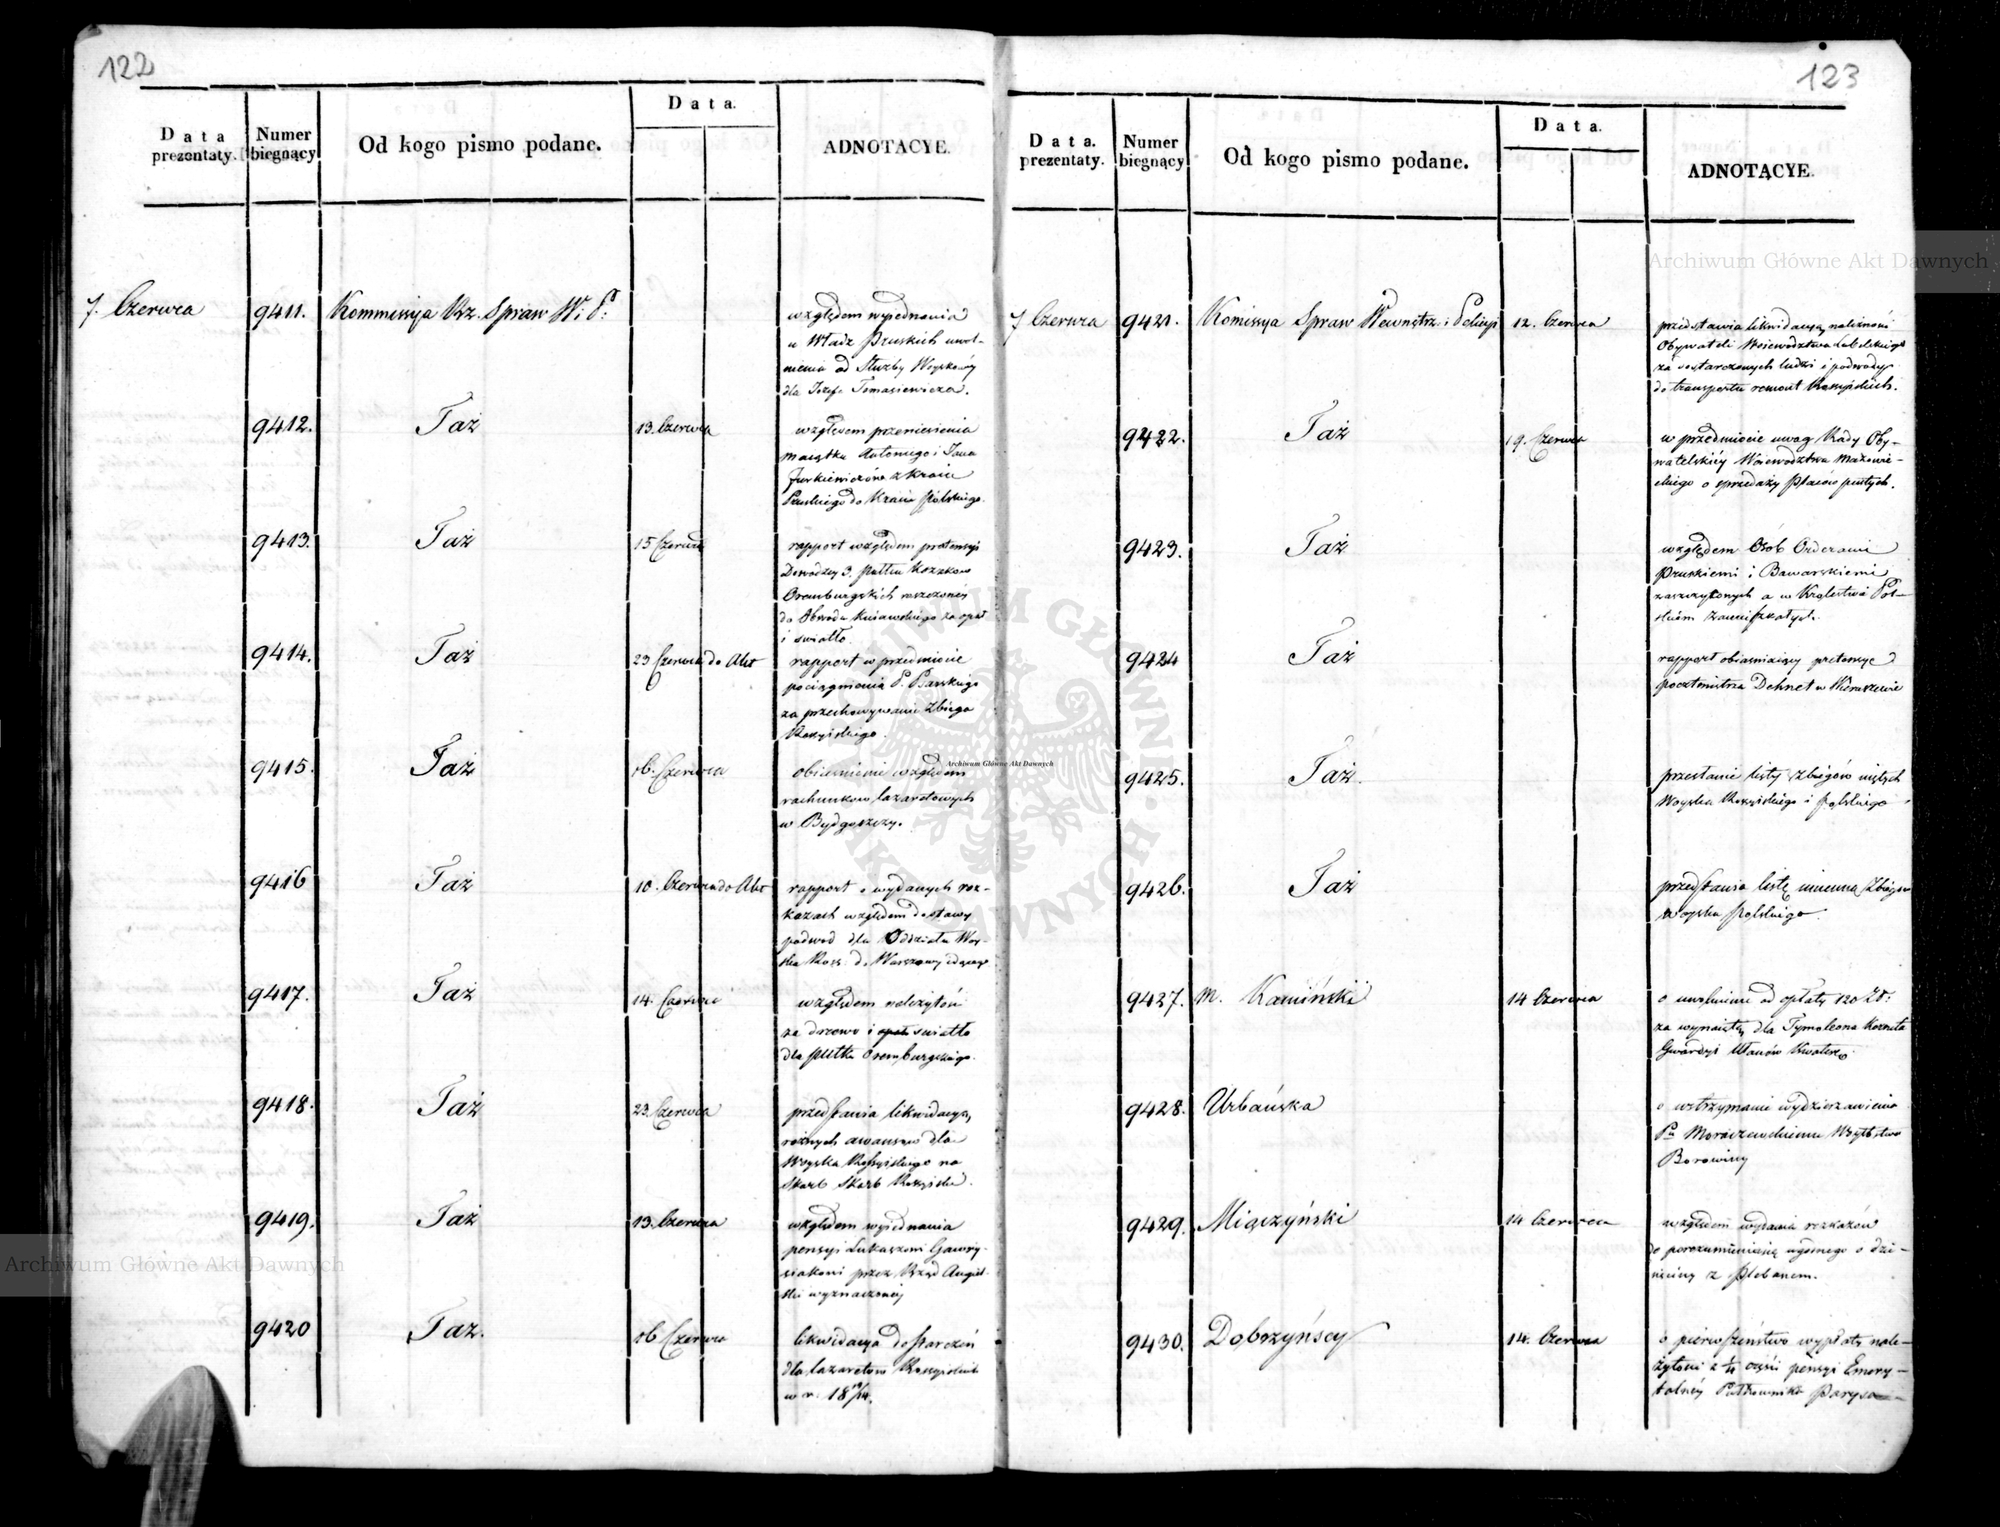 122
Data prezentaty.
Numer biegnący
Od kogo pismo podane.
Data.
ADNOTACYE.
7. Czerwca
9411.
Kommissya Rz. Spraw W. P.
względem wyjednania
u Władz Pruskich uwol-
nienia od Służby Woyskowéy
dla Józefa Tomasiewicza.
9412.
Taż
13. Czerwca
względem przeniesienia
maiątku Antoniego i Jana
Jurkiewiczów z Kraiu
Pruskiego do Kraiu Polskiego.
9413.
Taż
15 Czerwca
rapport względem pretensyi
Dowódzcy 3. Pułku Kozaków
Orenburgskich roszczonéy
do Obwodu Kuiawskiego za opał
i światło.
9414.
Taż
23 Czerwca do Akt
rapport w przedmiocie
pociągnienia P. Barskiego
za przechowywanie Zbiega
Rossyiskiego.
9415.
Taż
16. Czerwca
obiaśnienie względem
rachunków lazaretowych
w Bydgoszczy.
9416
Taż
10. Czerwca do Akt
rapport o wydanych roz-
kazach względem dostawy
podwod dla Oddziału Woy-
ska Ross. do Warszawy idącego
9417.
Taż
14. Czerwca
względem należytości
za drzewo i światło
dla Pułku Orenburgskiego.
9418.
Taż
23. Czerwca
przedstawia likwidacyą
różnych awansów dla
Woyska Rossyiskiego na
Skarb Skarb Rossyiski.
9419.
Taż
13. Czerwca
względem wyjednania
pensyi Łukaszowi Gawry-
siakowi przez Rząd Angiel-
ski wyznaczonéy
9420
Taż.
16 Czerwca
likwidacya dostarczeń
dla lazaretów Rossyiskich
w r. 18 13/14.
123
Data. prezentaty.
Numer biegnący
Od kogo pismo podane.
Data.
ADNOTACYE.
7 Czerwca
9421.
Komissya Spraw Wewnętrz: i Policyi
12. Czerwca
przedstawia likwidacyą należności
Obywateli Województwa Lubelskiego
za dostarczonych ludzi i podwody
do transportu remont Rossyiskich.
9422.
Taż
19. Czerwca
w przedmiocie uwag Rady Oby-
watelskiéy Województwa Mazowie-
ckiego o sprzedaży Placów pustych.
9423.
Taż
względem Osób Orderami
Pruskiemi i Bawarskiemi
zaszczyconych a w Królestwie Pol-
skiém zamieszkałych.
9424
Taż
rapport obiaśniaiący pretensye
pocztmistrza Dehnel w
9425.
Taż.
przesłanie listy zbiegów
Woyska Rossyiskiego i Polskiego
9426.
Taż
przedstawia listę imienną Zbiegów
Woyska Polskiego.
9427.
M. Kamiński
14 Czerwca
o uwolnienie od opłaty 120 Zł:
za wynaiętą dla Tymoleona
Gwardyi Ułanów Kwaterę.
9428.
Urbańska
o wstrzymanie wydzierzawienia
Pu Moraczewskiemu Wójtostwa
Borowiny
9429.
Miączyński
14 Czerwca
względem wydania rozkazów
do porozumienia się o dzie-
sięciny z Plebanem.
9430.
Dobrzyńscy
14. Czerwca
o pierwszeństwo wypłaty nale-
żytości z 1/4 części pensyi Emery-
talnéy Pułkownika Parysa
Archiwum Główne Akt Dawnych
Archiwum Główne Akt Dawnych
Archiwum Główne Akt Dawnych
ARCHIWUM GŁÓWNE AKT DAWNYCH